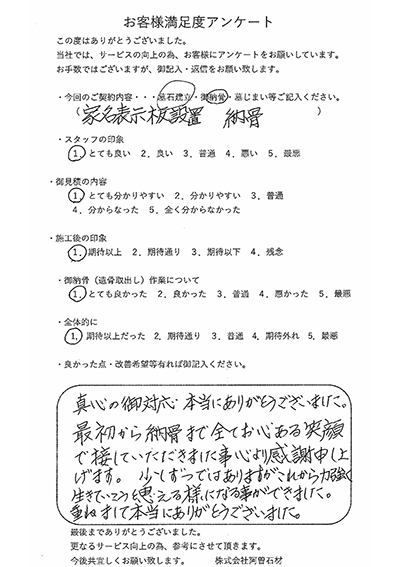 お客様満足度アンケート
この度はありがとうございました。
当社では、サービスの向上の為、お客様にアンケートをお願いしています。
お手数ではございますが、御記入・返信をお願い致します。
・今回のご契約内容・・・墓石建立・御納骨・墓じまい等ご記入ください。
(家名表示板設置 納骨)
・スタッフの印象
1．とても良い 2．良い 3．普通 4．悪い 5．最悪
・御見積の内容
1．とても分かりやすい 2．分かりやすい 3．普通
4．分からなった 5．全く分からなかった
・施工後の印象
1．期待以上 2．期待通り 3．期待以下 4．残念
・御納骨（遺骨取出し）作業について
1．とても良かった 2．良かった 3．普通 4．悪かった 5．最悪
・全体的に
1．期待以上だった 2．期待通り 3．普通 4．期待外れ 5．最悪
・良かった点・改善希望等有れば御記入ください。
真心の御対応 本当にありがとうございました。
最初から納骨まで全てお心ある笑顔
で接していただきました事心より感謝申し上
げます。少しずつではありますがこれから力強く
生きていこうと思える様になる事ができました。
重ねまして本当にありがとうございました。
最後までありがとうございました。
更なるサービス向上の為、参考にさせて頂きます。
今後共宜しくお願い致します。 株式会社阿曽石材